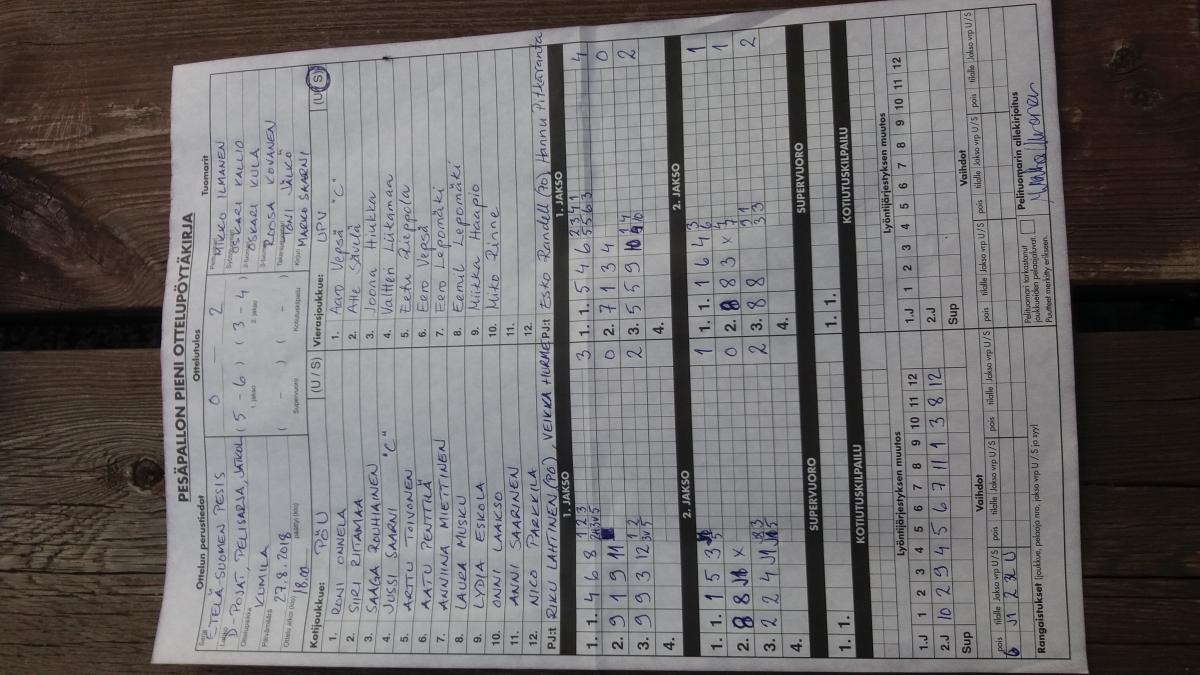 PESÄPALLON PIENI OTTELUPÖYTÄKIRJA
Ottelun perustiedot Ottelutulos Tuomarit
Sarja ETELÄ-SUOMEN PESIS 0 – 2 MIKKO ILMANEN
Lohko D-POJAT, PELISARJA, OSKARI KALLIO
Ottelupaikka KUMILA (5 – 6) (3 – 4) OSKARI KULA
1. jakso 2. jakso
Päivämäärä 27.8.2018 ROOSA KOVANEN
Ottelu alkoi (klo) 18.00 päättyi (klo) ( – ) ( – ) TONI JÄLKÖ
Supervuoro Kotiutuskilpailu
Kirjuri MARKO SAARNI
Kotijoukkue: PÖU (U / S) Vierasjoukkue: UPV (U / S)
1. RONI ONNELA 1. Aaro Vepsä "C"
2. SIIRI RIITAMAA 2. Atte Savela
3. SAAGA ROUHIAINEN 3. Joona Hiukka
4. JUSSI SAARNI "C" 4. Valtteri Liukaman
5. ARTTU TOIVONEN 5. Eetu Rieppola
6. AATU PENTTILÄ 6. Eero Vepsä
7. ANNIINA MIETTINEN 7. Eero Lepomäki
8. LAURA MUSKU 8. Eemil Lepomäki
9. LYDIA ESKOLA 9. Miikka Haapio
10. ONNI LAAKSO 10. Niko Rinne
11. ANNI SAARINEN 11.
12. NICO PARKKILA 12.
PJ:t RIKU LAHTINEN (PÖ), VEIKKA HURME PJ:t Esko Randell (PO) Hannu Pitkäranta
1. JAKSO 1. JAKSO
1. 1. 4 6 8 3 1. 1. 5 4 6 4
2. 9 1 9 11 0 2. 7 1 3 4 0
3. 9 9 3 12 2 3. 5 5 9 10 2
4. 4.
2. JAKSO 2. JAKSO
1. 1. 1 5 3 1 1. 1. 1 6 4 1
2. 8 8 x 0 2. 8 8 3 x 1
3. 2 4 J1 2 3. 8 8 2
4. 4.
SUPERVUORO SUPERVUORO
1. 1. 1. 1.
KOTIUTUSKILPAILU KOTIUTUSKILPAILU
Lyöntijärjestyksen muutos Lyöntijärjestyksen muutos
1.J 1 2 3 4 5 6 7 8 9 10 11 12 1.J 1 2 3 4 5 6 7 8 9 10 11 12
2.J 10 2 9 4 5 6 7 11 1 3 8 12 2.J
Sup Sup
Vaihdot Vaihdot
pois tilalle Jakso vrp U/S pois tilalle Jakso vrp U/S pois tilalle Jakso vrp U/S pois tilalle Jakso vrp U/S pois tilalle Jakso vrp U/S
6 J1 2 U
Rangaistukset (joukkue, pelaaja nro, jakso vrp U / S ja syy)
Pelituomari tarkastanut joukkueiden pelaajaluvat.
Puutteet merkitty erikseen.
Pelituomarin allekirjoitus